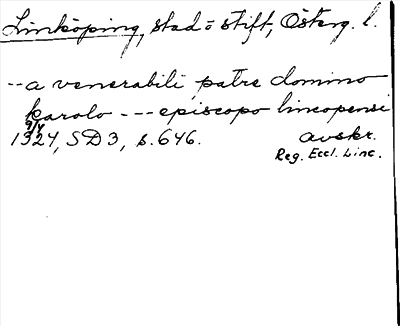 Linköping, stad o stift, Österg. l.
-- a venerabili patre domino
karolo --- episcopo lincopensi
9/4
1324, SD 3, s. 646. avskr.
Reg. Eccl. Linc.